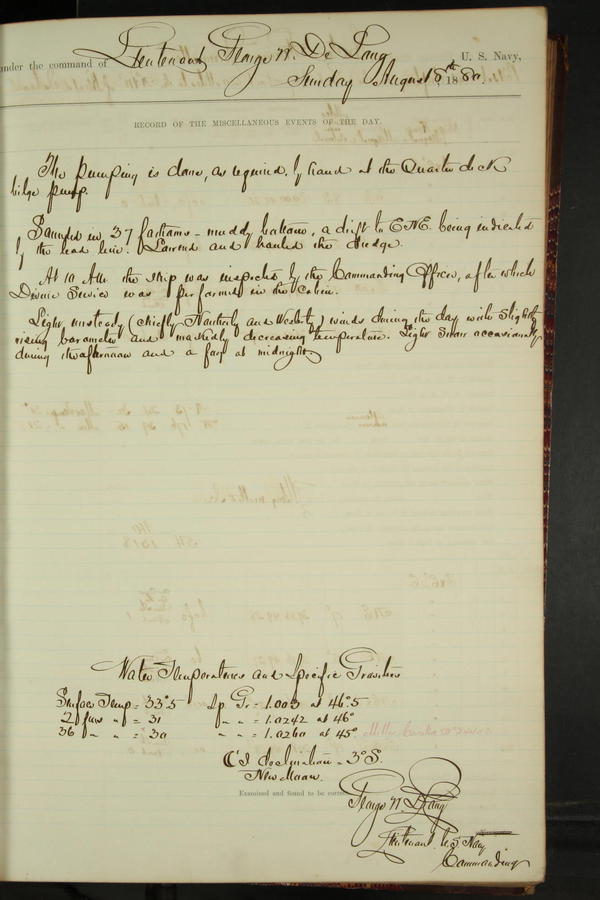 under the command of Lieutenant George W. De Long U. S. Navy,
Sunday August 1880.
RECORD OF THE MISCELLANEOUS EVENTS OF THE DAY.
The pumping is done, as required, by hand at the Quarter deck
bilge pump.
Sounded in 37 fathoms - muddy bottom, a drift to ENE. being indicated
by the lead line. Lowered and hauled the dredge.
At 10 AM the ship was inspected by the Commanding Officer, after which
Divine Service was performed in the Cabin.
Light unsteady (chiefly Northerly and Westerly) winds during the day with slightly
rising barometer and markedly decreasing temperature. Light Snow occasionally
during the afternoon and a fog at midnight
Water Temperatures and Specific Gravities
Surface Temp = 33°.5 Sp. Gr = 1.003 at 46°.5
2 fms " = 31 " " = 1.0242 at 46°
36 " " = 30 " " = 1.0260 at 45°
declination - 3° S.
New Moon.
Examined and found to be correct
George W. De Long
Lieutenant U.S Navy
Commanding